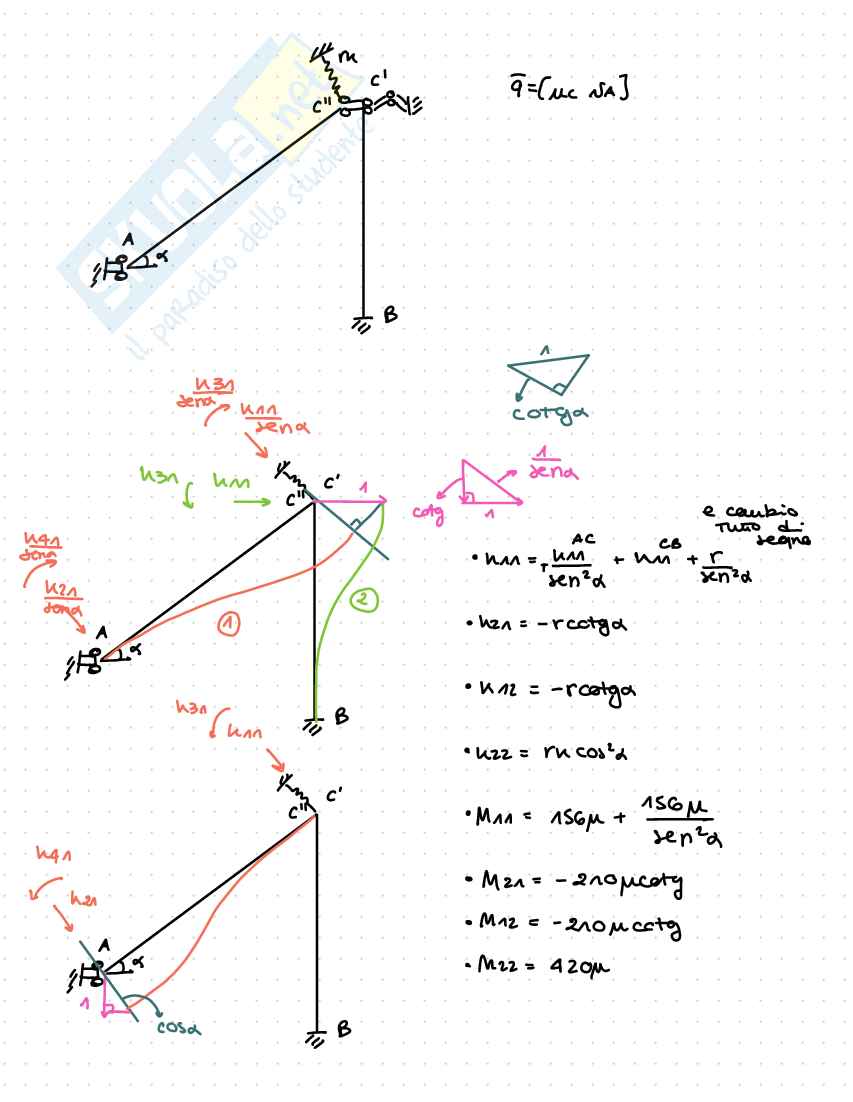 SKUOLA.net
il paradiso dello studente
m
C'
C''
q̄=[μc vA]
A
α
B
1
cotgα
k31
senα
k11
senα
k31 k11
C'
C''
1
1/senα
cotg
1
k41
senα
k21
senα
A
α
1
2
B
e cambio
tutto di
segno
• k11 = k11^AC/sen²α + k11^CB + r/sen²α
• k21 = -rcotgα
• k12 = -rcotgα
• k22 = rk cos²α
• M11 = 156μ + 156μ/sen²α
• M21 = -210μcotg
• M12 = -210μcotg
• M22 = 420μ
k31
k11
C'
C''
k41
k21
A
α
1
cosα
B